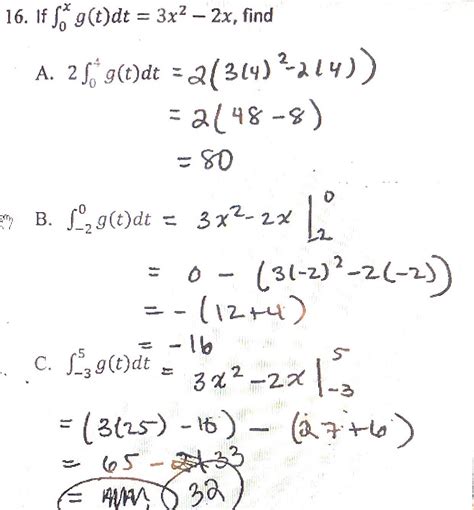 16. If ∫₀ˣ g(t)dt = 3x² − 2x, find
A. 2∫₀⁴ g(t)dt = 2(3(4)²-2(4))
= 2(48-8)
= 80
B. ∫₋₂⁰ g(t)dt = 3x²-2x |₋₂⁰
= 0 - (3(-2)²-2(-2))
= -(12+4)
= -16
C. ∫₋₃⁵ g(t)dt = 3x²-2x |₋₃⁵
= (3(25)-10) - (27+6)
= 65 - 33
= 32